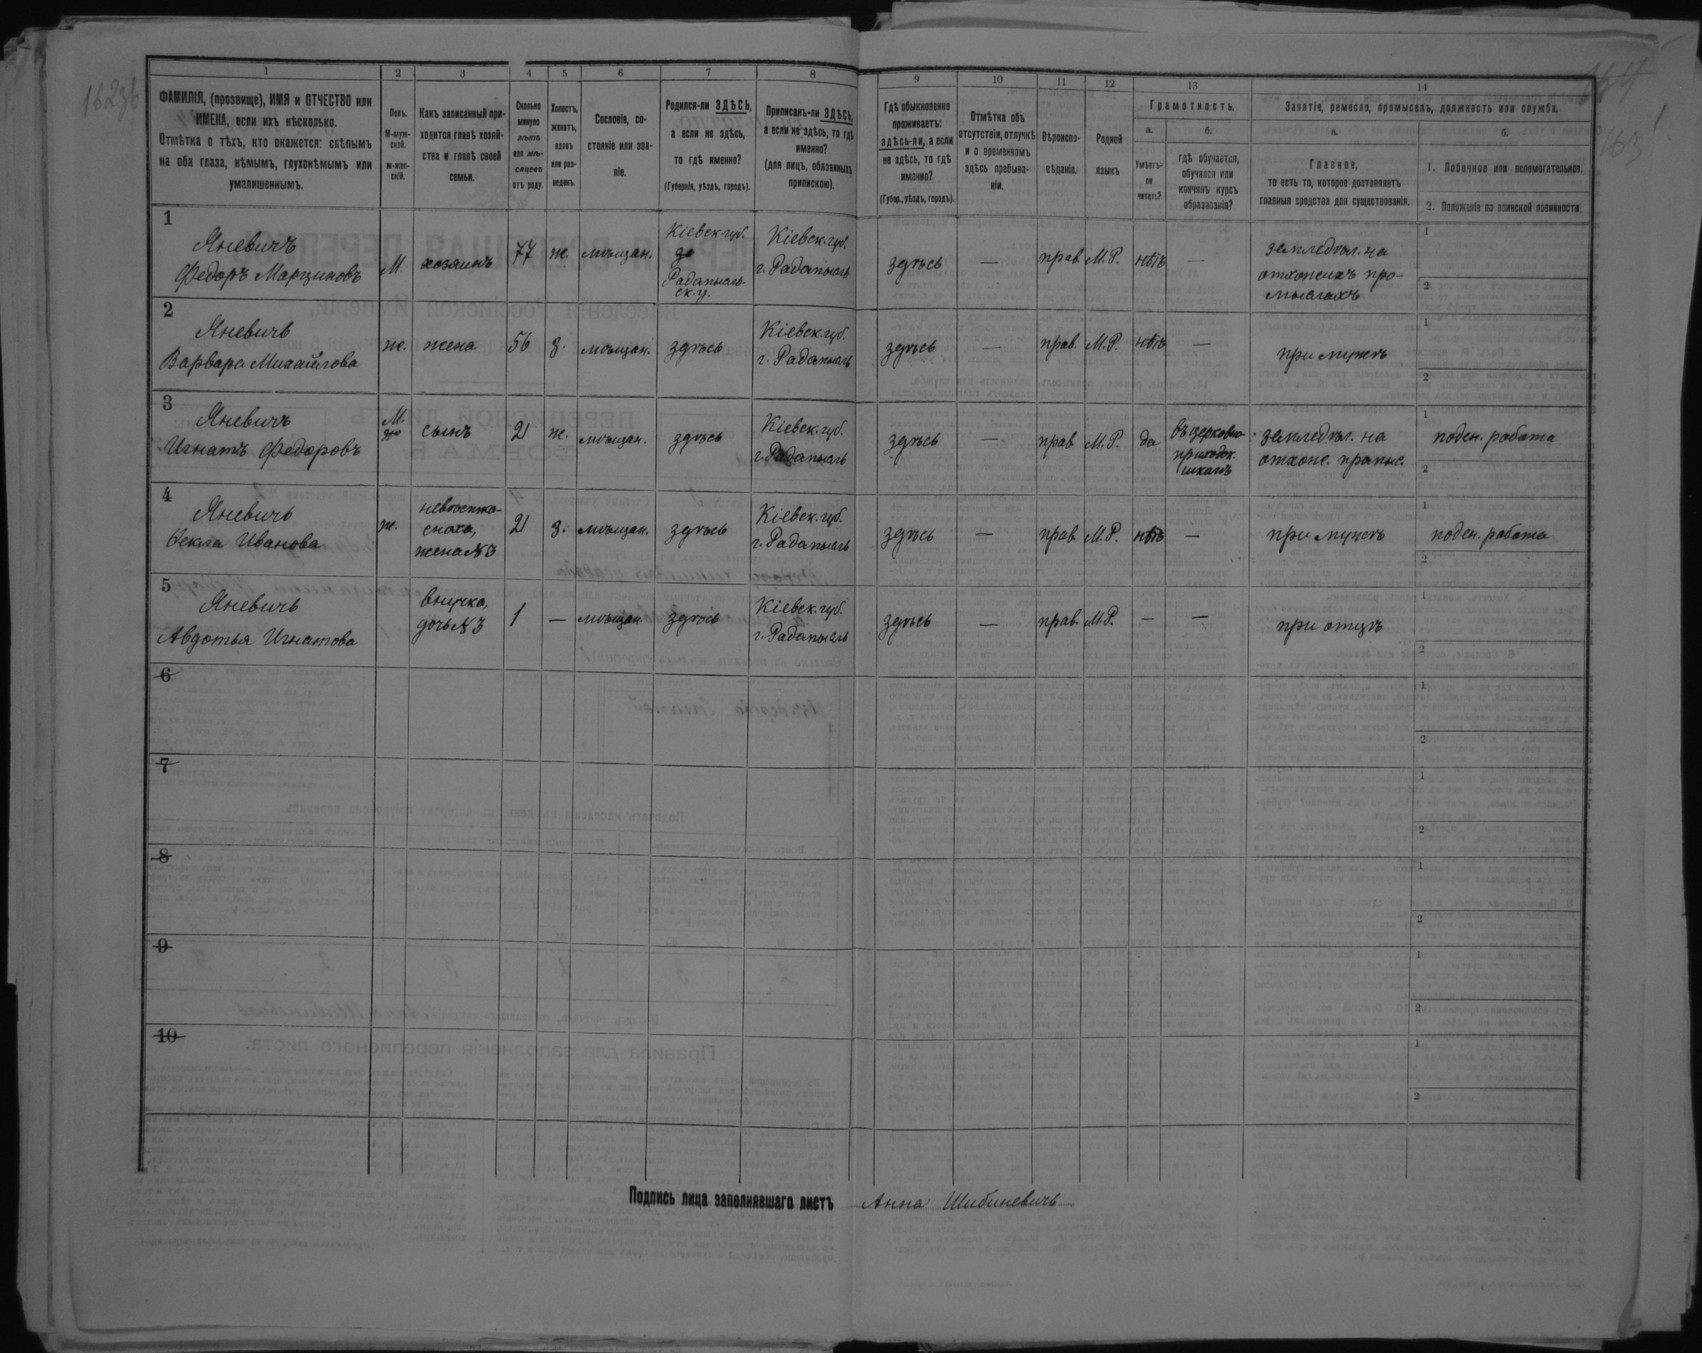 1 2 3 4 5 6 7 8 9 10 11 12 13 14
ФАМИЛІЯ, (прозвище), ИМЯ и ОТЧЕСТВО или
ИМЕНА, если ихъ нѣсколько.
Отмѣтка о тѣхъ, кто окажется: слѣпымъ
на оба глаза, нѣмымъ, глухонѣмымъ или
умалишеннымъ.
Полъ.
М-муж-
ской.
ж-жен-
скій.
Какъ записанный при-
ходится главѣ хозяй-
ства и главѣ своей
семьи.
Сколько
минуло
лѣтъ
или мѣ-
сяцевъ
отъ роду.
Холостъ,
женатъ,
вдовъ
или раз-
веденъ.
Сословіе, со-
стояніе или зва-
ніе.
Родился-ли ЗДѢСЬ,
а если не здѣсь,
то гдѣ именно?
(Губернія, уѣздъ, городъ).
Приписанъ-ли ЗДѢСЬ,
а если не здѣсь, то гдѣ
именно?
(для лицъ, обязанныхъ
припискою).
Гдѣ обыкновенно
проживаетъ:
здѣсь-ли, а если
не здѣсь, то гдѣ
именно?
(Губер., уѣздъ, городъ).
Отмѣтка объ
отсутствіи, отлучкѣ
и о временномъ
здѣсь пребыва-
ніи.
Вѣроиспо-
вѣданіе.
Родной
языкъ
Грамотность.
а.
Умѣетъ-
ли
читать?
б.
гдѣ обучается,
обучался или
кончилъ курсъ
образованія?
Занятіе, ремесло, промыселъ, должность или служба.
а.
Главное,
то есть то, которое доставляетъ
главныя средства для существованія.
б.
1. Побочное или вспомогательное.
2. Положеніе по воинской повинности
1
Яневичъ
Федоръ Марциновъ
М.
хозяинъ
77
ж.
мѣщан.
Кіевск.губ.
Радамысль-
ск.у.
Кіевск.губ.
г. Радамысль
здѣсь
—
прав
М.Р.
нѣтъ
—
земледѣл. на
отхожихъ про-
мыслахъ
1
2
2
Яневичъ
Варвара Михайлова
ж.
жена
56
з.
мѣщан.
здѣсь
Кіевск.губ.
г. Радамысль
здѣсь
—
прав.
М.Р.
нѣтъ
—
при мужѣ
1
2
3
Яневичъ
Игнатъ Федоровъ
М.
сынъ
21
ж.
мѣщан.
здѣсь
Кіевск.губ.
г. Радамысль
здѣсь
—
прав
М.Р.
да
въ церковно
приходск.
школѣ
земледѣл. на
отхож. промыс.
1
поден. работа
2
4
Яневичъ
Векла Иванова
ж.
невѣстка-
сноха,
жена №3
21
з.
мѣщан.
здѣсь
Кіевск.губ.
г. Радамысль
здѣсь
—
прав
М.Р.
нѣтъ
—
при мужѣ
1
поден. работа
2
5
Яневичъ
Авдотья Игнатова
внучка,
дочь №3
1
—
мѣщан
здѣсь
Кіевск.губ.
г. Радамысль
здѣсь
—
прав.
М.Р.
—
—
при отцѣ
1
2
6
1
2
7
1
2
8
1
2
9
1
2
10
1
2
Подпись лица заполнявшаго листъ Анна Шибиневичъ